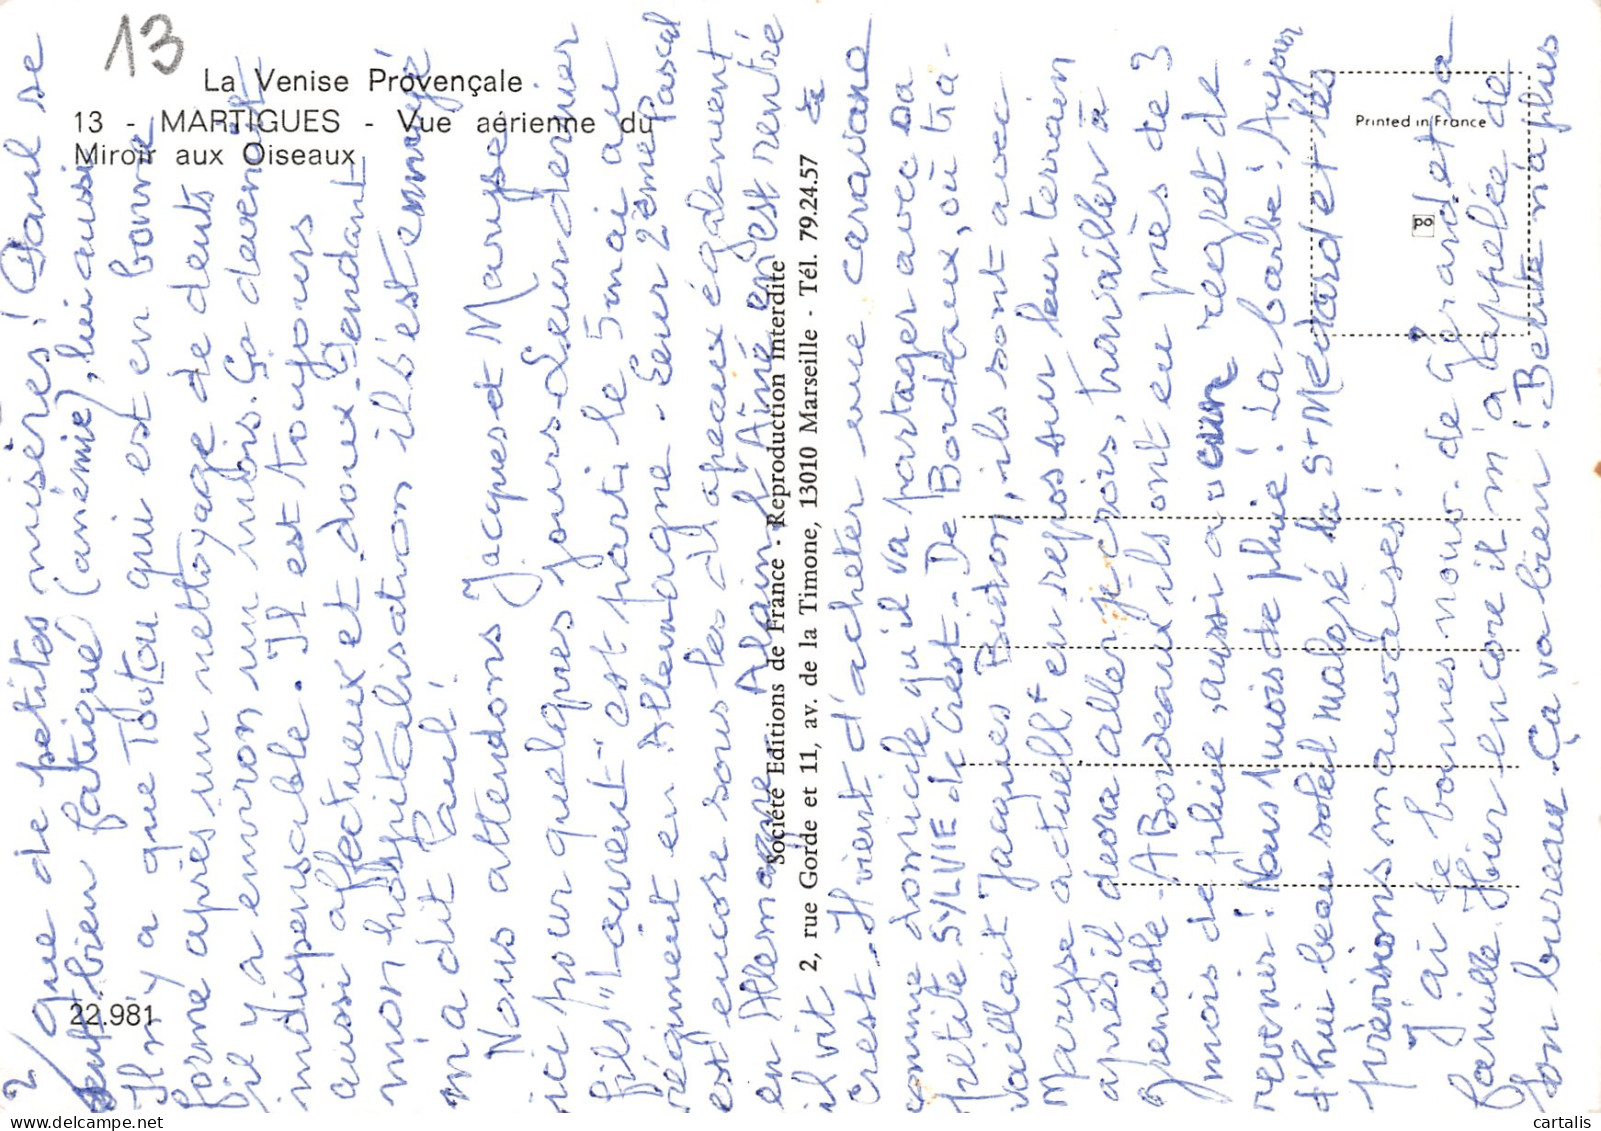 13
La Venise Provençale
13 - MARTIGUES - Vue aérienne du
Miroir aux Oiseaux
22.981
Société Editions de France - Reproduction interdite
2, rue Gorde et 11, av. de la Timone, 13010 Marseille - Tél. 79.24.57
Printed in France
2/ que de petites misères! Paul se
sent bien fatigué (anémie), lui aussi
Il n'y a que Toutou qui est en bonne
forme après un nettoyage de dents
il y a environ un mois. Ça devenait
indispensable. Il est toujours
aussi affectueux et doux. Pendant
mon hospitalisation il s'est ennuyé
m'a dit Paul!
Nous attendons Jacques et Maryse
ici pour quelques jours. Leur dernier
fils "Laurent" est parti le 5 mai au
régiment en Allemagne. Leur 2ème Pascal
est encore sous les drapeaux également
en Allemagne Alain l'Aîné en est rentré
il vit
Crest. Il vient d'acheter une caravane
comme domicile qu'il va partager avec sa
petite SYLVIE de Crest. De Bordeaux, où tra-
vaillait Jacques ils sont avec
Maryse actuellt en repos sur leur terrain
après il devra aller je crois, travailler à
Grenoble. A Bordeaux ils ont eu près de 3
mois de pluie, aussi aucun regret de
revenir! Nous 1 mois de pluie! La barbe! Aujour
d'hui beau soleil malgré la St Médard et les
prévisions mauvaises!
J'ai de bonnes nouv. de Gérard et sa
famille. Hier encore il m'a appelée de
son bureau. Ça va bien! n'a plus
cartalis